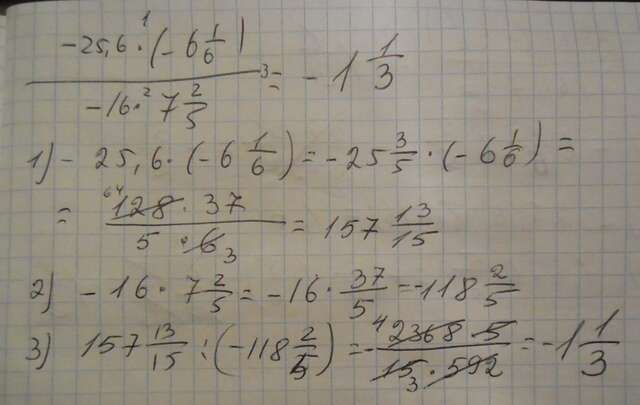 -25,6 · (-6 1/6) / -16 · 7 2/5 = -1 1/3
1) -25,6 · (-6 1/6) = -25 3/5 · (-6 1/6) =
= 64 128 · 37 / 5 · 6 3 = 157 13/15
2) -16 · 7 2/5 = -16 · 37/5 = -118 2/5
3) 157 13/15 : (-118 2/5) = - 4 2368 · 5 / 15 3 · 592 = -1 1/3